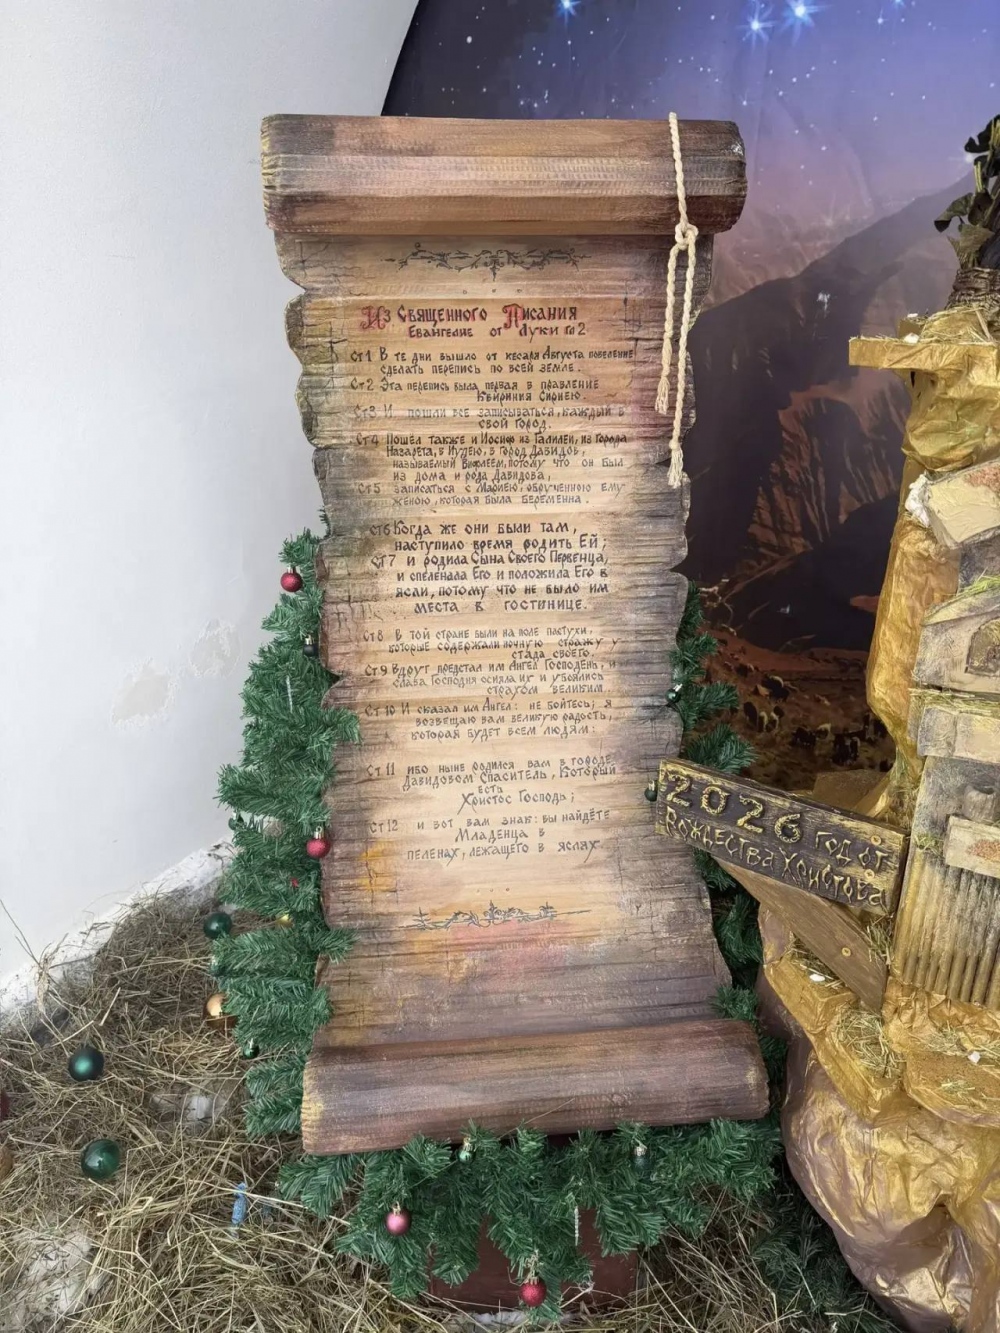 Из Священного Писания
Евангелие от Луки гл 2
Ст 1 В те дни вышло от кесаря Августа повеление
сделать перепись по всей земле.
Ст 2 Эта перепись была первая в правление
Квириния Сириею.
Ст 3 И пошли все записываться, каждый в
свой город.
Ст 4 Пошёл также и Иосиф из Галилеи, из города
Назарета, в Иудею, в город Давидов,
называемый Вифлеем, потому что он был
из дома и рода Давидова,
Ст 5 записаться с Мариею, обрученною ему
женою, которая была беременна.
Ст 6 Когда же они были там,
наступило время родить Ей;
Ст 7 и родила Сына Своего Первенца,
и спеленала Его и положила Его в
ясли, потому что не было им
места в гостинице.
Ст 8 В той стране были на поле пастухи,
которые содержали ночную стражу у
стада своего.
Ст 9 Вдруг предстал им Ангел Господень, и
слава Господня осияла их и убоялись
страхом великим
Ст 10 И сказал им Ангел: не бойтесь; я
возвещаю вам великую радость,
которая будет всем людям:
Ст 11 ибо ныне родился вам в городе
Давидовом Спаситель, Который
есть
Христос Господь;
Ст 12 и вот вам знак: вы найдёте
Младенца в
пеленах, лежащего в яслях
2026 год от
Рождества Христова